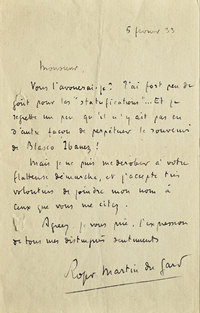 5 février 33
Monsieur,
Vous l'avouerai-je ? J'ai fort peu de
goût pour les "statufications"... Et je
regrette un peu qu'il n'y ait pas eu
d'autre façon de perpétuer le souvenir
de Blasco Ibanez !
Mais je ne puis me dérober à votre
flatteuse démarche, et j'accepte très
volontiers de joindre mon nom à
ceux que vous me citez.
Agréez, je vous prie, l'expression
de tous mes distingués sentiments
Roger Martin du Gard